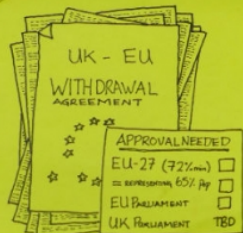 UK - EU
WITHDRAWAL
AGREEMENT
APPROVAL NEEDED
EU-27 (72% min)
= REPRESENTING 65% Pop
EU PARLIAMENT
UK PARLIAMENT TBD